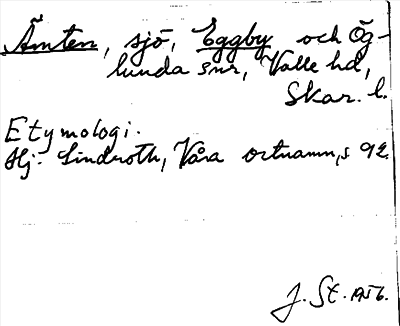 Ämten, sjö, Eggby och Ög-
lunda snr, Valle hd,
Skar. l.
Etymologi.
Hj. Lindroth, Våra ortnamn, s 92.
J. St. 1956.